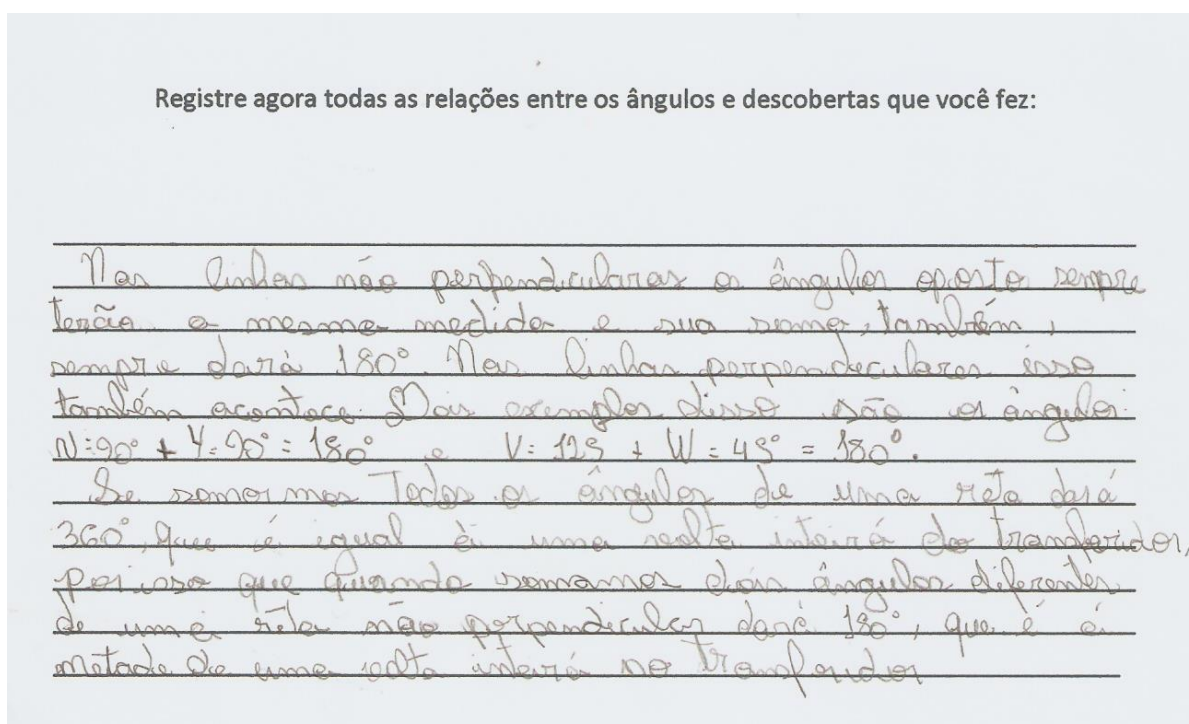 Registre agora todas as relações entre os ângulos e descobertas que você fez:
Nas linhas não perpendiculares os ângulos oposto sempre
terão a mesma medida e sua soma, também,
sempre dará 180°. Nas linhas perpendeculares isso
também acontece. Dois exemplos disso são os ângulos:
N:90° + Y:90° = 180° e V: 125 + W: 45° = 180°.
Se somormos Todos os ângulos de uma reta dará
360°, que é igual à uma volta inteirá do transferidor,
por isso que quando somamos dois ângulos diferentes
de uma réta não perpendicular dará 180°, que é á
metade de uma volta inteirá no transferidor